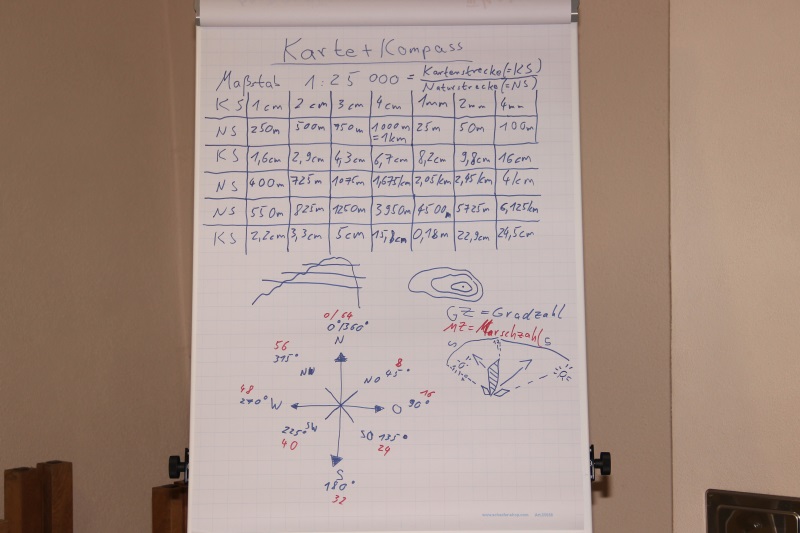 Karte + Kompass
Maßstab 1:25 000 = Kartenstrecke (=KS)
Naturstrecke (=NS)
KS 1cm 2cm 3cm 4cm 1mm 2mm 4mm
NS 250m 500m 750m 1000m =1km 25m 50m 100m
KS 1,6cm 2,9cm 4,3cm 6,7cm 8,2cm 9,8cm 16cm
NS 400m 725m 1075m 1,675km 2,05km 2,45km 4km
NS 550m 825m 1250m 3950m 4500m 5725m 6,125km
KS 2,2cm 3,3cm 5cm 15,8cm 0,18m 22,9cm 24,5cm
GZ = Gradzahl
MZ = Marschzahl
0/64
0°/360°
N
56
315°
NW
8
NO 45°
S
S
48
270° W
16
O 90°
225° SW
40
SO 135°
24
S
180°
32